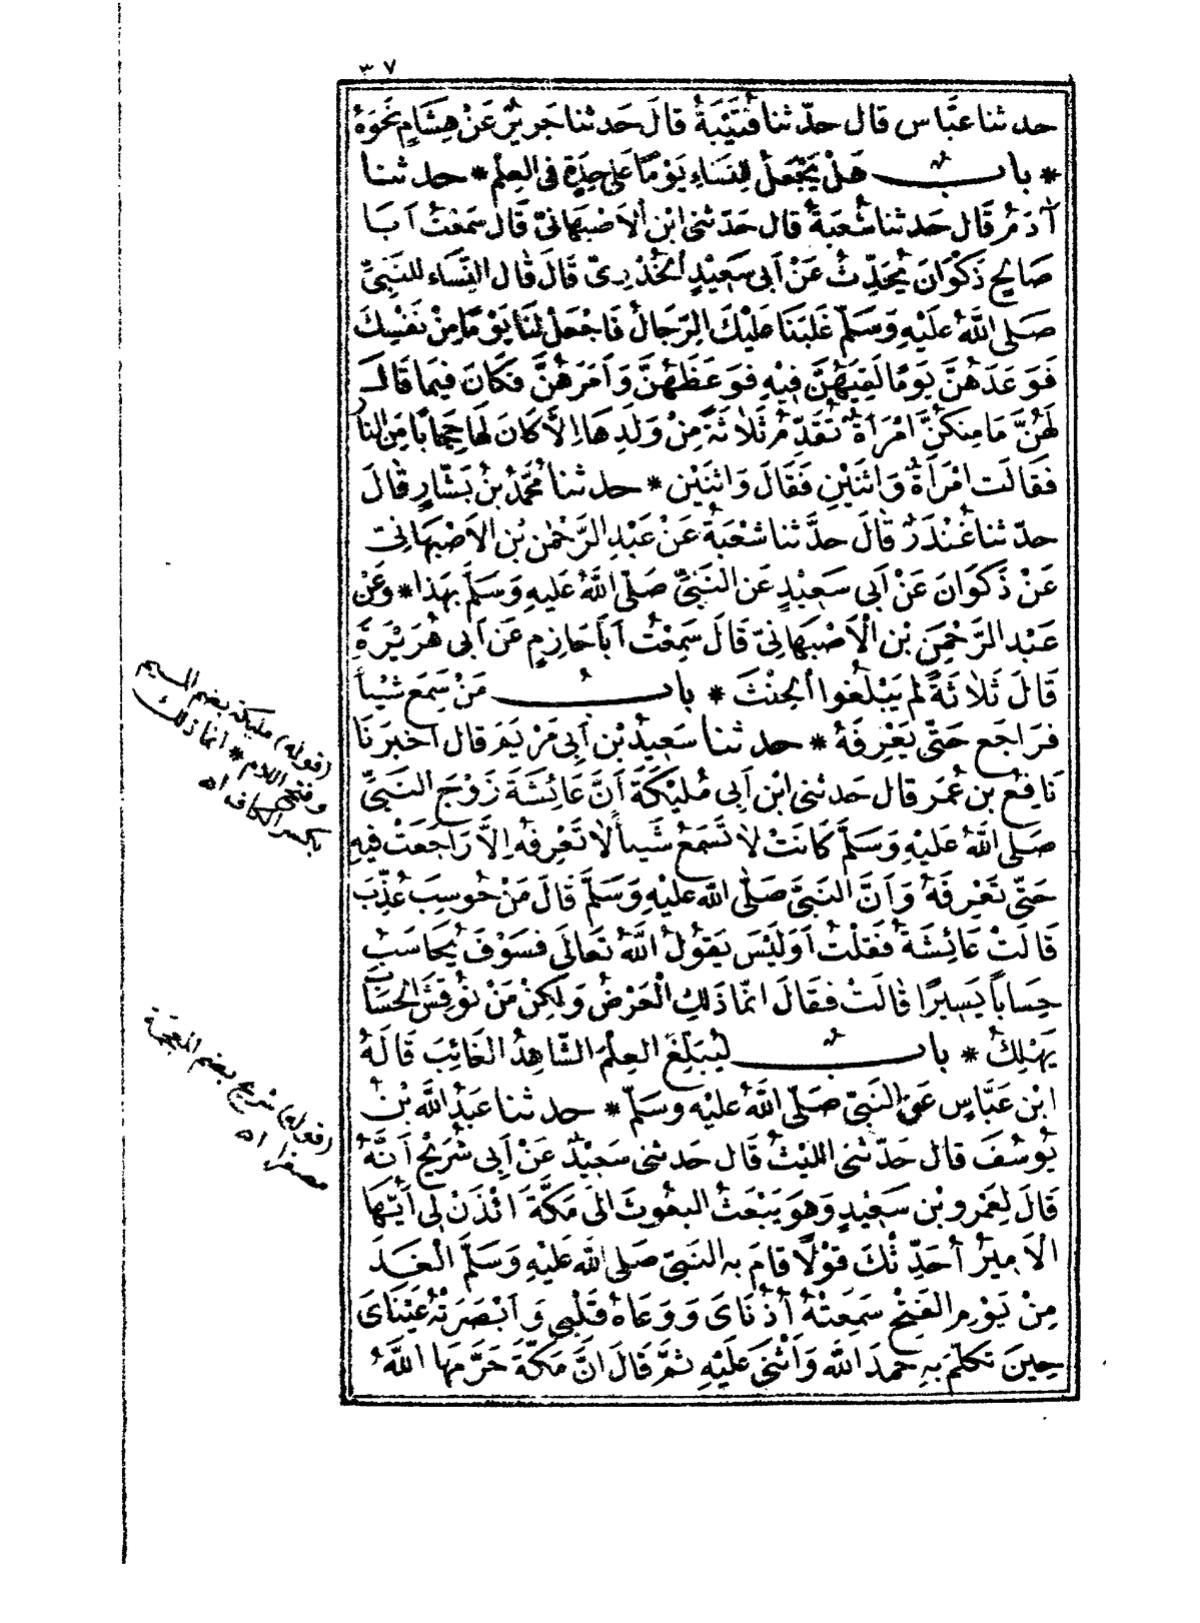 ٣٧
حدثنا عَبَّاس قال حدّثنا قُتَيْبَةُ قالَ حَدثنا جَرِيْرٌ عَنْ هِشَامٍ نَحْوَهُ
* بابُ هَلْ يَجْعَلُ لِلنِسَاءِ يَوْمًا عَلى حِدَةٍ فى العِلْمِ * حدثنا
آدَمُ قَال حَدثنا شُعْبَةُ قال حَدّثنى ابْن الاَصْبَهَانىّ قَال سَمْعْتُ اَبَا
صَالِحٍ ذَكْوَانَ يُحَدِّثُ عَنْ اَبى سَعِيْدٍ الخُدْرِىّ قَالَ قَال النِّسَاء للنَبِىِّ
صَلى اللَّهُ عَلَيْهِ وَسَلّمَ غَلَبَنَا عَلَيْكَ الرِّجَالُ فَاجْعَلْ لنَا يَوْمًا مِنْ نَفْسِكَ
فَوَعَدَهُنَّ يَوْمًا لَقِيَهُنَّ فيْهِ فوَعَظَهُنَّ وَاَمَرَهُنَّ فكَانَ فيمَا قَالَ
لَهُنَّ مَا مِنكُنَّ امْرَأةٌ تُقَدّمُ ثَلاثَةً مِنْ وَلَدِهَا اِلاَّ كَانَ لهَا حِجَابًا مِنَ النار
فَقَالَت امْرَأةٌ وَاثنَيْنِ فَقَالَ وَاثنَيْن * حدثنا مُحَمَّدُ بْنُ بَشّارٍ قالَ
حدّثنا غُنْدَرٌ قالَ حدَّثنا شعْبَةُ عَنْ عَبْدِ الرَّحْمٰن بْن الاَصْبهَانىّ
عَنْ ذَكْوَانَ عَنْ اَبى سَعِيْدٍ عَن النَبىِّ صَلّى اللَّهُ عَليهِ وَسَلّمَ بهَذا * وَعَنْ
عَبْد الرَّحْمَنِ بْن الْاَصْبَهَانىّ قَالَ سَمِعْتُ اَبَا حَازِمٍ عَن اَبى هُرَيْرَةَ
قَالَ ثَلاثَةً لَم يَبْلُغُوا الحِنْثَ * بابُ مَنْ سَمِعَ شيْئاً
فرَاجَع حَتّى يَعْرِفَهُ * حدثنا سَعِيدُ بْن اَبِى مَرْيَمَ قال اَخْبَرَنَا
نَافِعُ بن عُمَر قال حَدثنى ابْن اَبِى مُليْكَةَ اَنَّ عَائِشَةَ زَوْجَ النَّبىِّ
صَلى اللَّهُ عَليْهِ وَسَلمَّ كَانَتْ لاَ تَسْمَعُ شَيْئاً لاَ تَعْرِفُهُ اِلاَّ رَاجَعَتْ فيهِ
حَتّى تَعْرِفَهُ وَاَنَّ النَبىَّ صَلى اللّه عَليْهِ وَسَلّمَ قَالَ مَنْ حُوسِبَ عُذِّبَ
قَالَتْ عَائِشَةُ فَقلْتُ اَوَلَيْسَ يَقُولُ اللَّهُ تعَالَى فَسَوْفَ يُحَاسَبُ
حِسَاباً يَسِيرًا قالَتْ فقَالَ انّمَا ذَلِكِ الْعَرْضُ وَلكِنْ مَنْ نُوقِشَ الحِسَابَ
يَهْلِكُ * بابُ لِيُبَلِّغ العِلْمَ الشّاهِدُ الغَائِبَ قَالَهُ
ابْن عَبَّاسٍ عَن النَبىّ صَلّى اللَّهُ عَليْهِ وسَلّمَ * حدثنا عَبدُ اللَّه بْنُ
يُوسُفَ قال حَدّثنى اللَيْثُ قَال حَدثنى سَعِيْدٌ عَنْ اَبِى شُرَيْحٍ اَنَّهُ
قَالَ لِعَمْرو بْن سَعِيْدٍ وَهوَ يَبْعَثُ البعُوثَ الىَ مَكَّةَ ائْذَنْ لى اَيُّهَا
الاَمِيرُ اُحَدّثْكَ قوْلاً قامَ بهِ النَبىّ صَلى اللّه عَليْهِ وَسَلّمَ الْغَدَ
مِنْ يَوْمِ الفَتْحِ سَمِعَتْهُ اُذُنَاىَ وَوَعَاهُ قَلْبِى وَاَبْصَرَتْهُ عَيْنَاىَ
حِينَ تكَلّمَ بهِ حَمِدَ اللّه وَاَثْنَى عَلَيْهِ ثمَّ قَالَ انَّ مَكّةَ حَرَّمَهَا اللَّهُ
(قوله) مليكة بضم الميم
وفتح اللام * انما ذلك
بكسر الكاف اه
(قوله) شريح بضم المعجمة
مصغرا اه